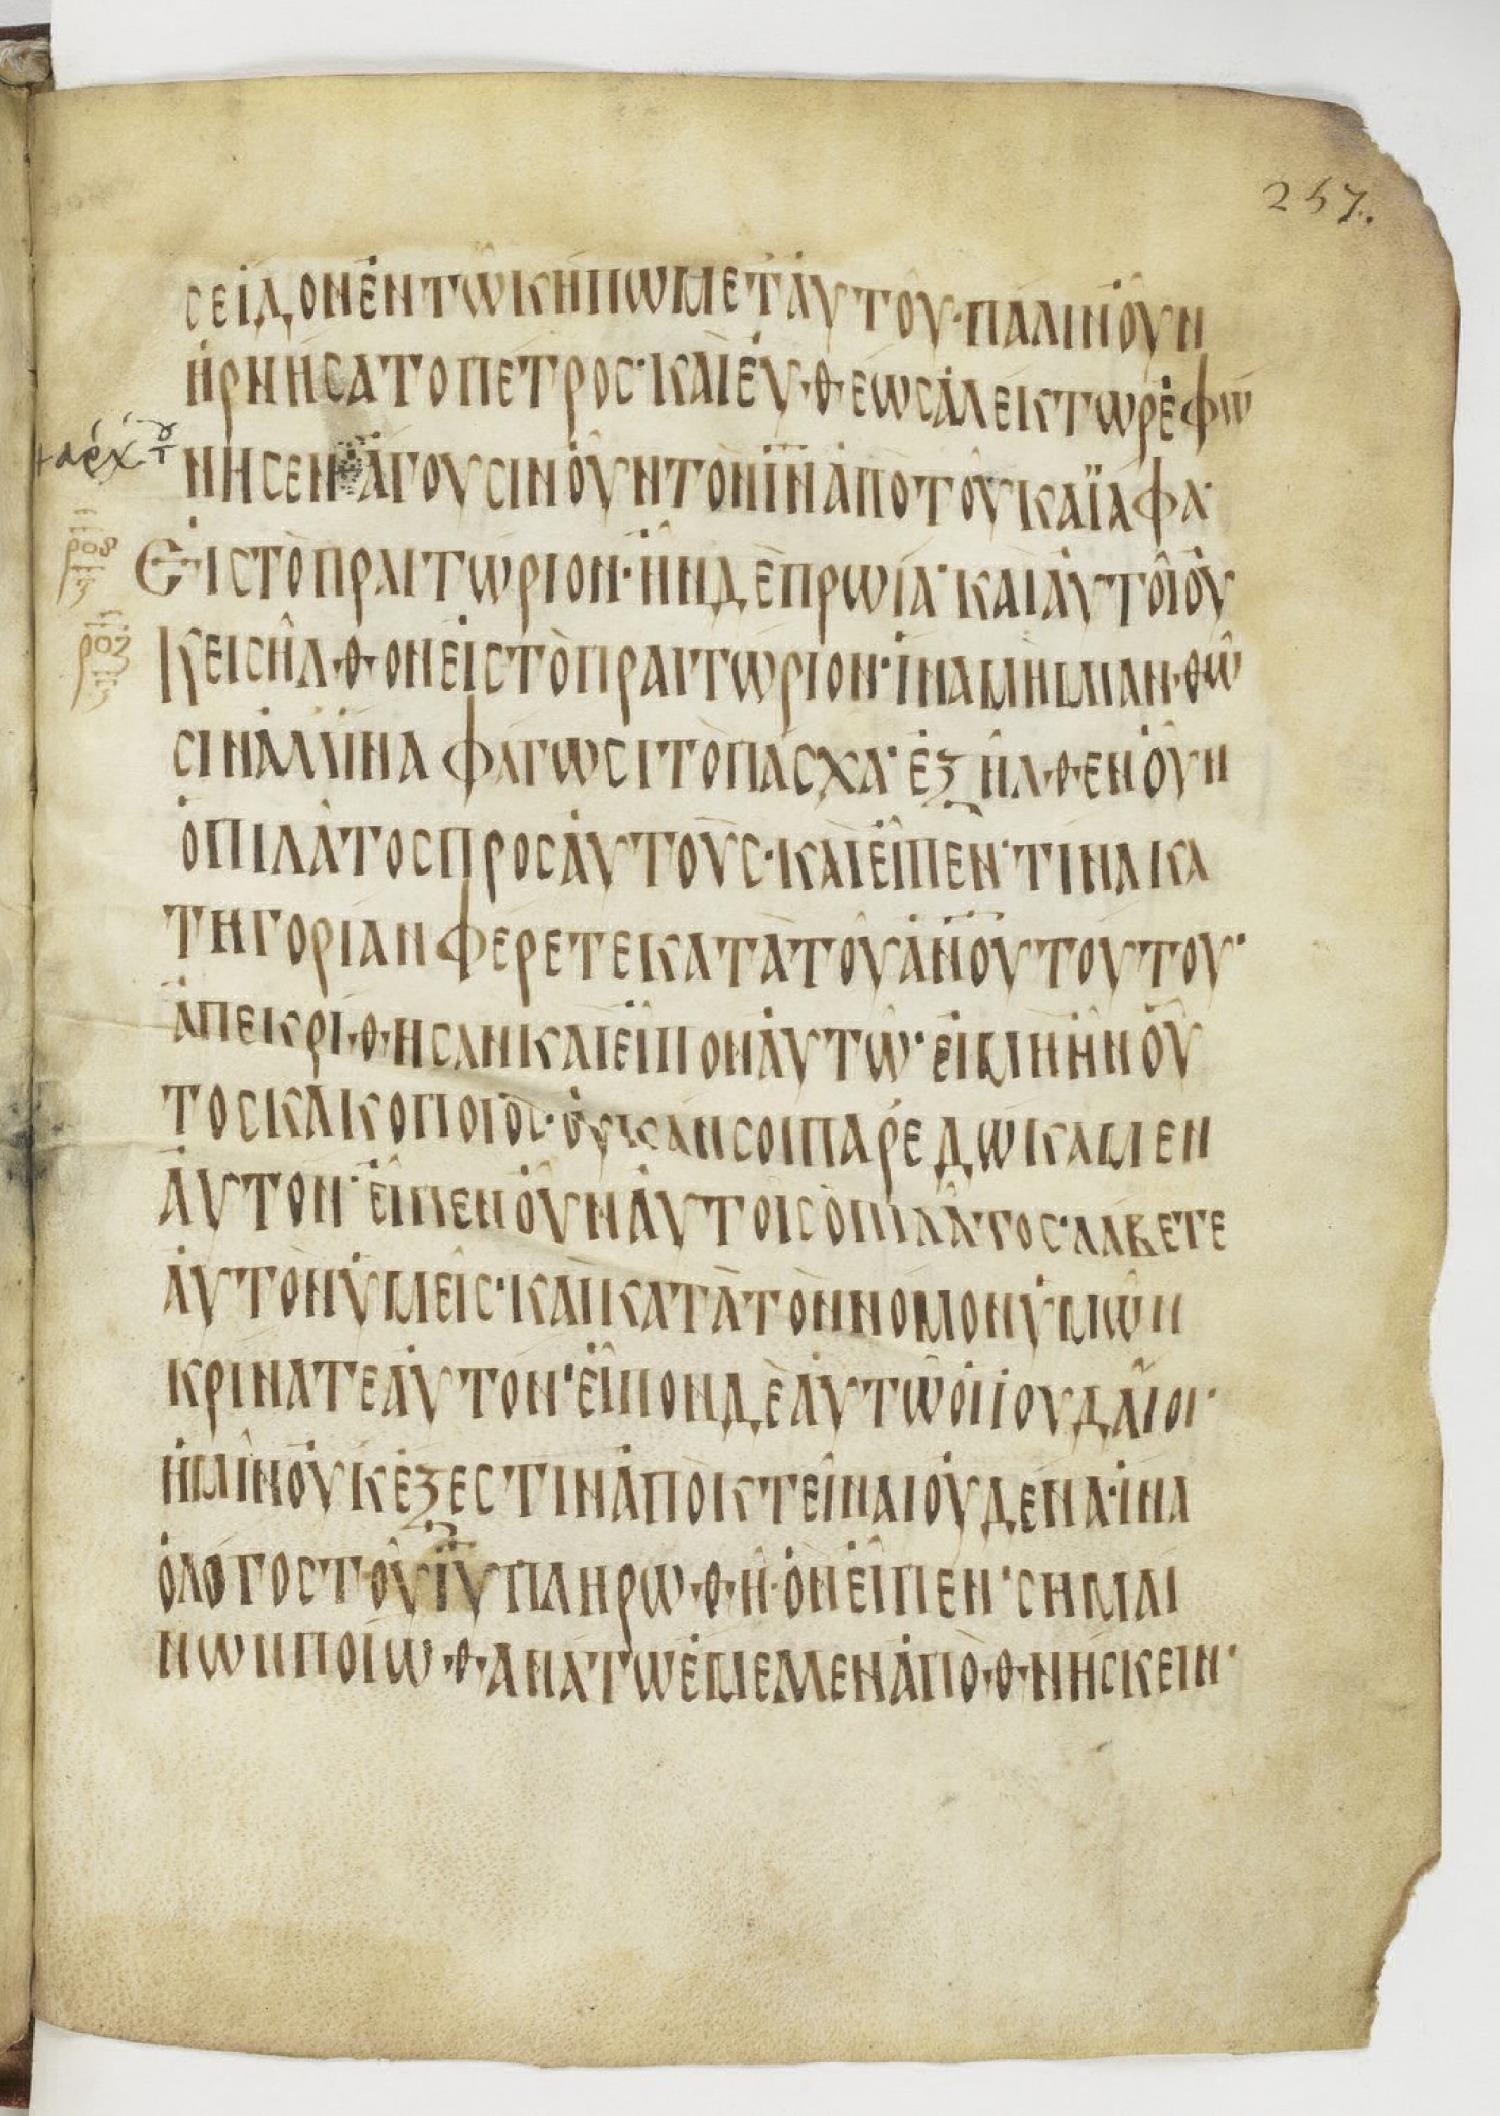 257.
σεἰδονἐντῶκήπωμεταὐτοῦ·πάλινοὖν
ἠρνήσατοπέτρος·καιεὐθεωσἀλέκτωρἐφώ
+αρχ τ
νησεν·ἄγουσινοὖντὸνιν̅ἀπὸτοῦκαϊάφα·
Εἰστὸπραιτώριον·ἦνδὲπρωία·καιαὐτοὶοὐ
σμη
ροϛ
ροζ
Κεισῆλθονεἰστὸπραιτώριον·ἵναμὴμιανθῶ
σιναλλἵναφάγωσιτὸπάσχα·ἐξῆλθενοὖν
ὁπιλᾶτοσπροσαὐτοὺς·καιεἶπεν·τίνακα
τηγορίανφέρετεκατὰτοῦαν̅ουτούτου·
ἀπεκρίθησανκαιεἶπον̓αὐτῶ·εἰμὴἦνοὗ
τοσκακοποιὸς·οὐκἄνσοιπαρεδώκαμεν
αὐτόν·εἶπενοὖναὐτοῖσὁπιλᾶτος·λάβετε
αὐτὸνὑμεῖς·καὶκατὰτὸννόμονὑμῶν
κρίνατεαὐτόν·εἶπονδὲαὐτῶοἱἰουδαῖοι·
ἡμῖνοὐκέξεστινἀποκτεῖναιοὐδένα·ἵνα
ὁλόγοστοῦιυ̅πληρωθῆ·ὃνεἶπεν·σημαί
νωνποίωθανάτωἔμελλενἀποθνήσκειν·